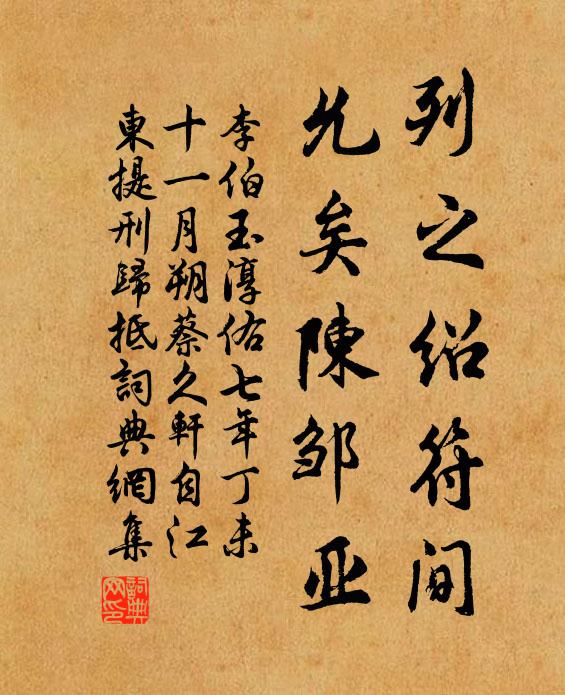 列之绍符间
允矣陳邹亚
李伯玉淳佑七年丁未
十一月朔蔡久軒自江
東提刑歸抵詞典網集
詞典網印